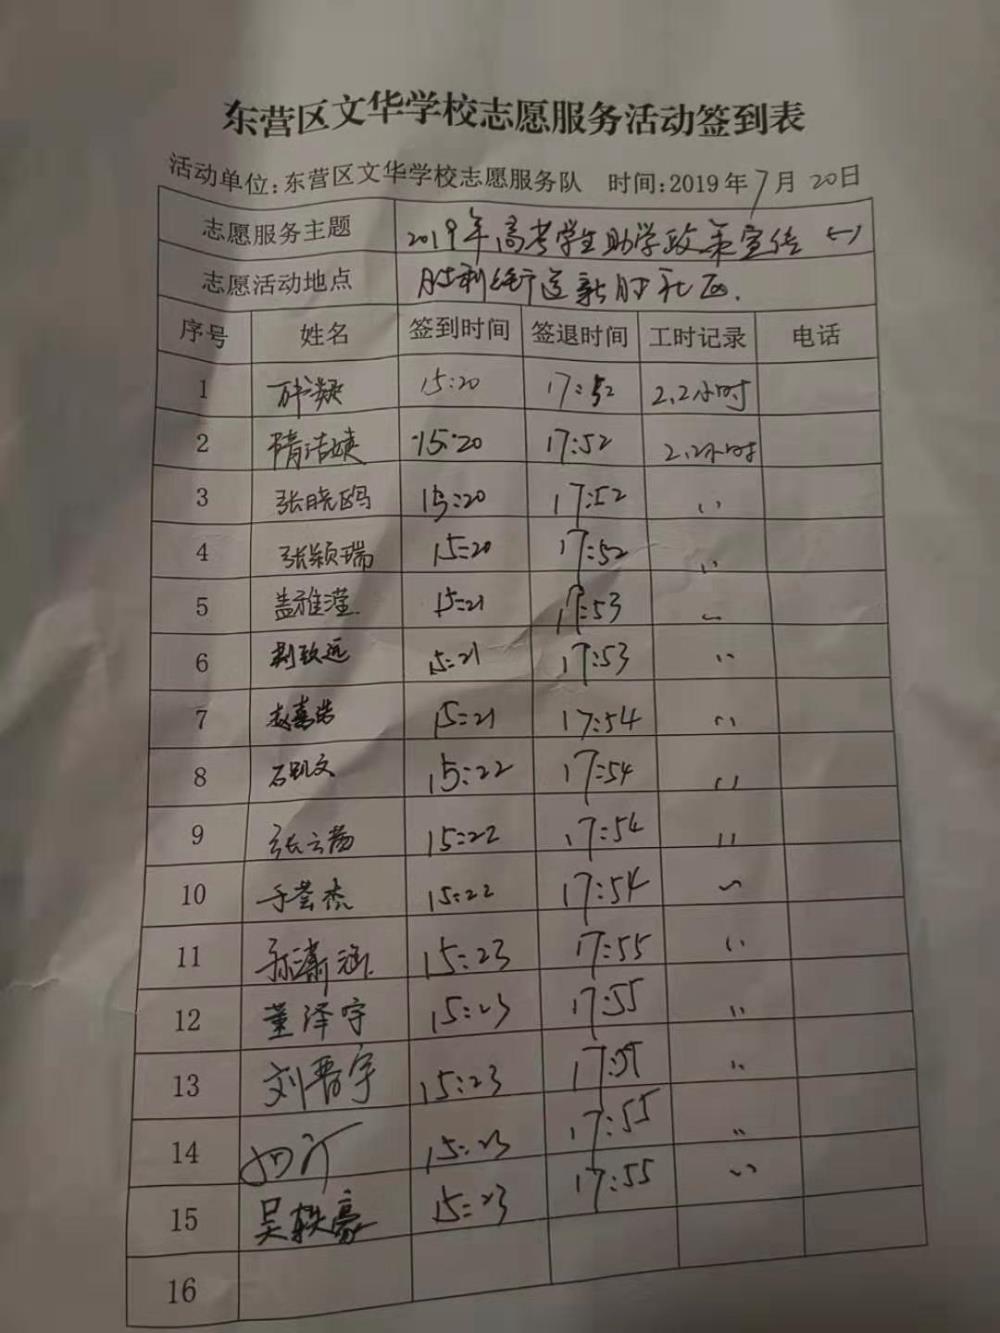 东营区文华学校志愿服务活动签到表
活动单位:东营区文华学校志愿服务队 时间:2019年7月20日
志愿服务主题 2019年高考学生助学政策宣传(一)
志愿活动地点 胜利街道新胜社区.
序号 姓名 签到时间 签退时间 工时记录 电话
1 15:20 17:52 2.2小时
2 隋洁 15:20 17:52 2.2小时
3 张晓鸥 15:20 17:52 〃
4 张颖瑞 15:20 17:52 〃
5 盖雅滢 15:21 17:53 〃
6 致远 15:21 17:53 〃
7 赵嘉浩 15:21 17:54 〃
8 石凯文 15:22 17:54 〃
9 张云 15:22 17:54 〃
10 于荟杰 15:22 17:54 〃
11 孙潇涵 15:23 17:55 〃
12 董泽宇 15:23 17:55 〃
13 刘晋宇 15:23 17:55 〃
14 15:23 17:55 〃
15 吴轶豪 15:23 17:55 〃
16